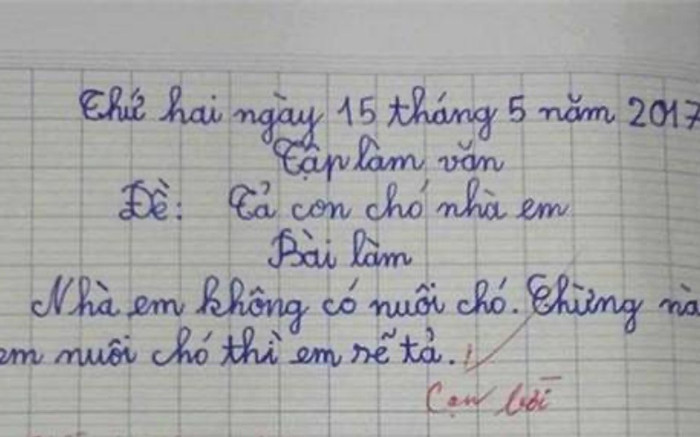 Thứ hai ngày 15 tháng 5 năm 2017
Tập làm văn
Đề: Tả con chó nhà em
Bài làm
Nhà em không có nuôi chó. Chừng nà
em nuôi chó thì em sẽ tả.!
Cạn lời